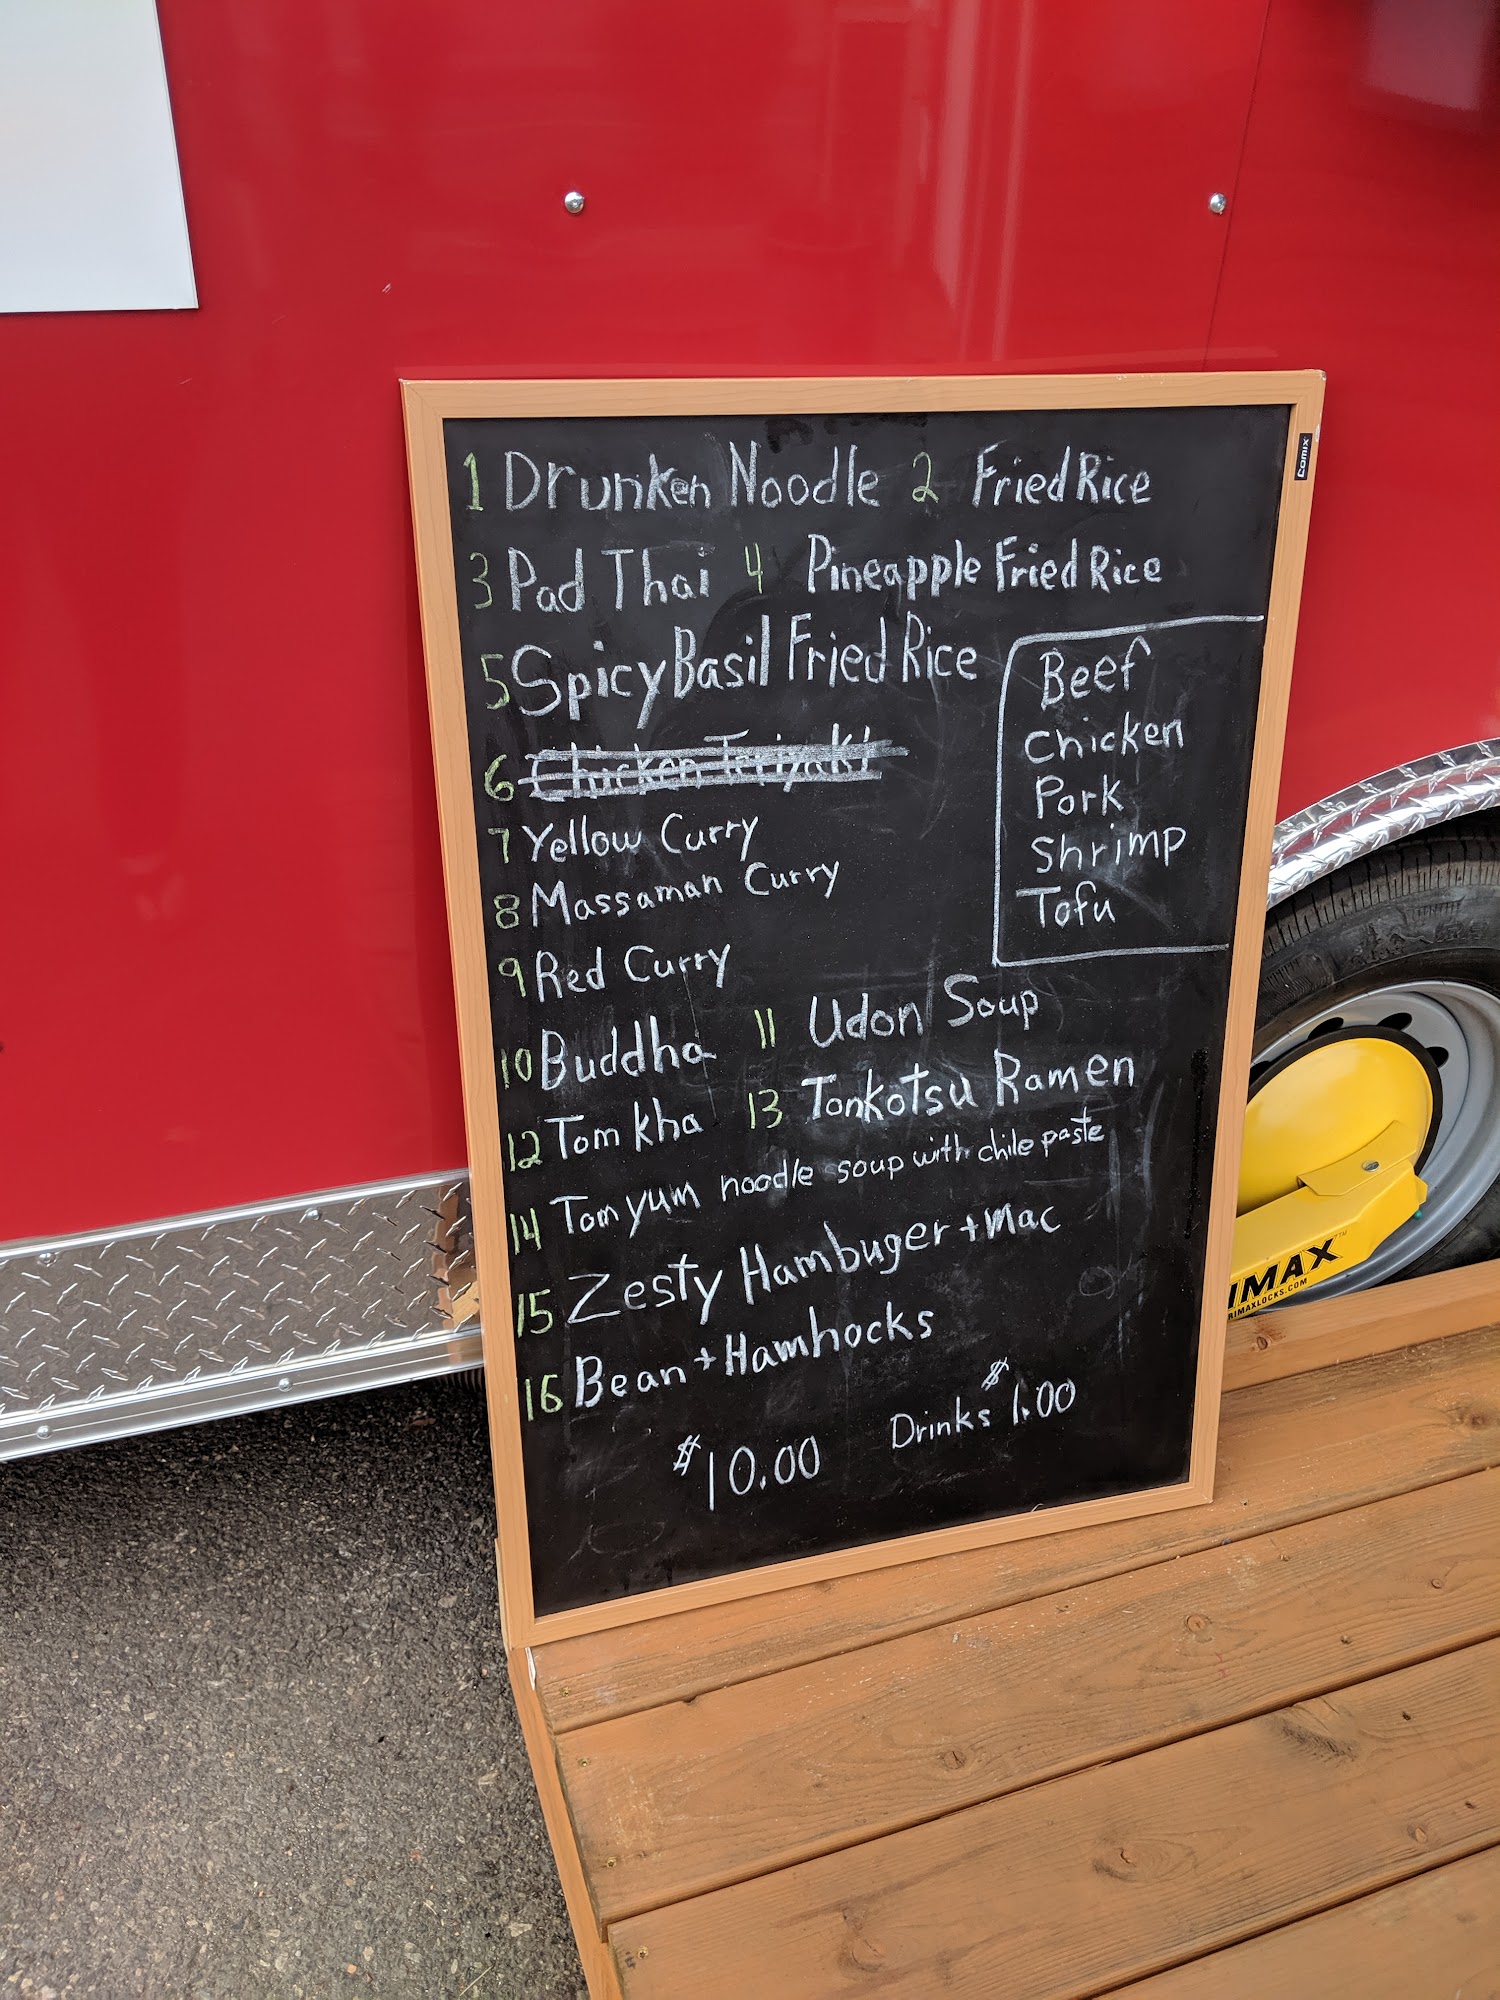 1 Drunken Noodle 2 Fried Rice
3 Pad Thai 4 Pineapple Fried Rice
5 Spicy Basil Fried Rice
6 Chicken Teriyaki
7 Yellow Curry
8 Massaman Curry
9 Red Curry
Beef
Chicken
Pork
Shrimp
Tofu
10 Buddha 11 Udon Soup
12 Tom kha 13 Tonkotsu Ramen
14 Tom yum noodle soup with chile paste
15 Zesty Hambuger + Mac
16 Bean + Hamhocks
$10.00 Drinks $1.00
comix
IMAX™
RIMAXLOCKS.COM